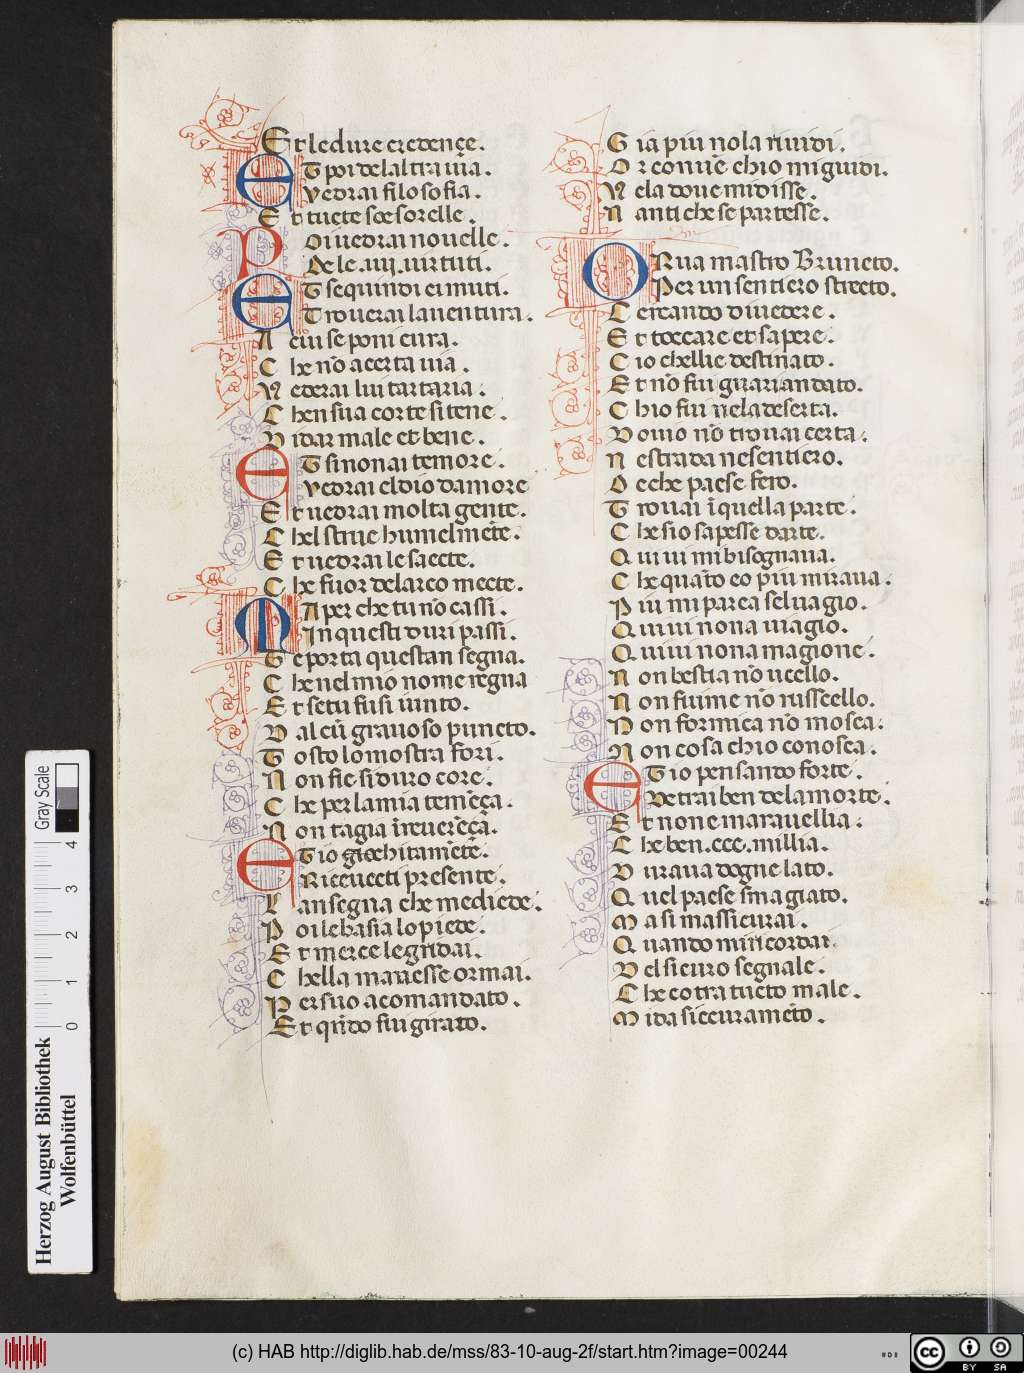 Et le dure credençe.
ET poi del altra uia.
Vedrai filosofia.
Et tucte soe sorelle.
POi uedrai nouelle.
De le .iiij. uirtuti.
ET se quindi ci muti.
Trouerai la uentura.
A cui se poni cura.
Che nō a certa uia.
Vederai lui tartaria.
Chen sua corte si tene.
Vidar male et bene.
ET si non ai temore.
Vedrai el dio damore
Et uedrai molta gente.
Chel strue humelmēte.
Et uedrai le saecte.
Che fuor de larco mecte.
MA per che tu nō cassi.
In questi duri passi.
Te porta questan segna.
Che nel mio nome regna
Et se tu fusi iunto.
Dal cū grauoso puncto.
Tosto lo mostra fori.
Non fie si duro core.
Che per la mia temēça.
Non tagia ī reuerēça.
ET io gicchitamēte.
Riceuecti presente.
Lansegna che mediede.
Poi le basia lo piede.
Et merce le gridai.
Chella mauesse ormai.
Per suo acomandato.
Et qn̄do fiu girato.
Gia piu nola riuidi.
Or conuē chio mi guidi.
Vela doue mi disse.
Nanti che se partesse.
ORua mastro Bruneto.
Per un sentiero strecto.
Cercando di uedere.
Et toccare et sapere.
Cio chellie destinato.
Et nō fui guariandato.
Chio fui nela deserta.
Douio nō trouai certa.
Ne strada ne sentiero.
De che paese fero.
Trouai ī quella parte.
Che sio sapesse darte.
Qui ui mi bisognaua.
Che quāto eo piu miraua.
Piu mi parea seluagio.
Quiui non a uiagio.
Quiui non a magione.
Non bestia nō ucello.
Non fiume nō russcello.
Non formica nō mosca.
Non cosa chio conosca.
ET io pensando forte.
Detrai ben dela morte.
Et none marauellia.
Che ben .ccc. millia.
Duraua dogne lato.
Quel paese smagiato.
Ma si massicurai.
Quando mi ricordai.
Del sicuro segnale.
Che cotra tucto male.
Mi da siccuramēto.
Herzog August Bibliothek
Wolfenbüttel
0 1 2 3 4
Gray Scale
(c) HAB http://diglib.hab.de/mss/83-10-aug-2f/start.htm?image=00244
cc BY SA